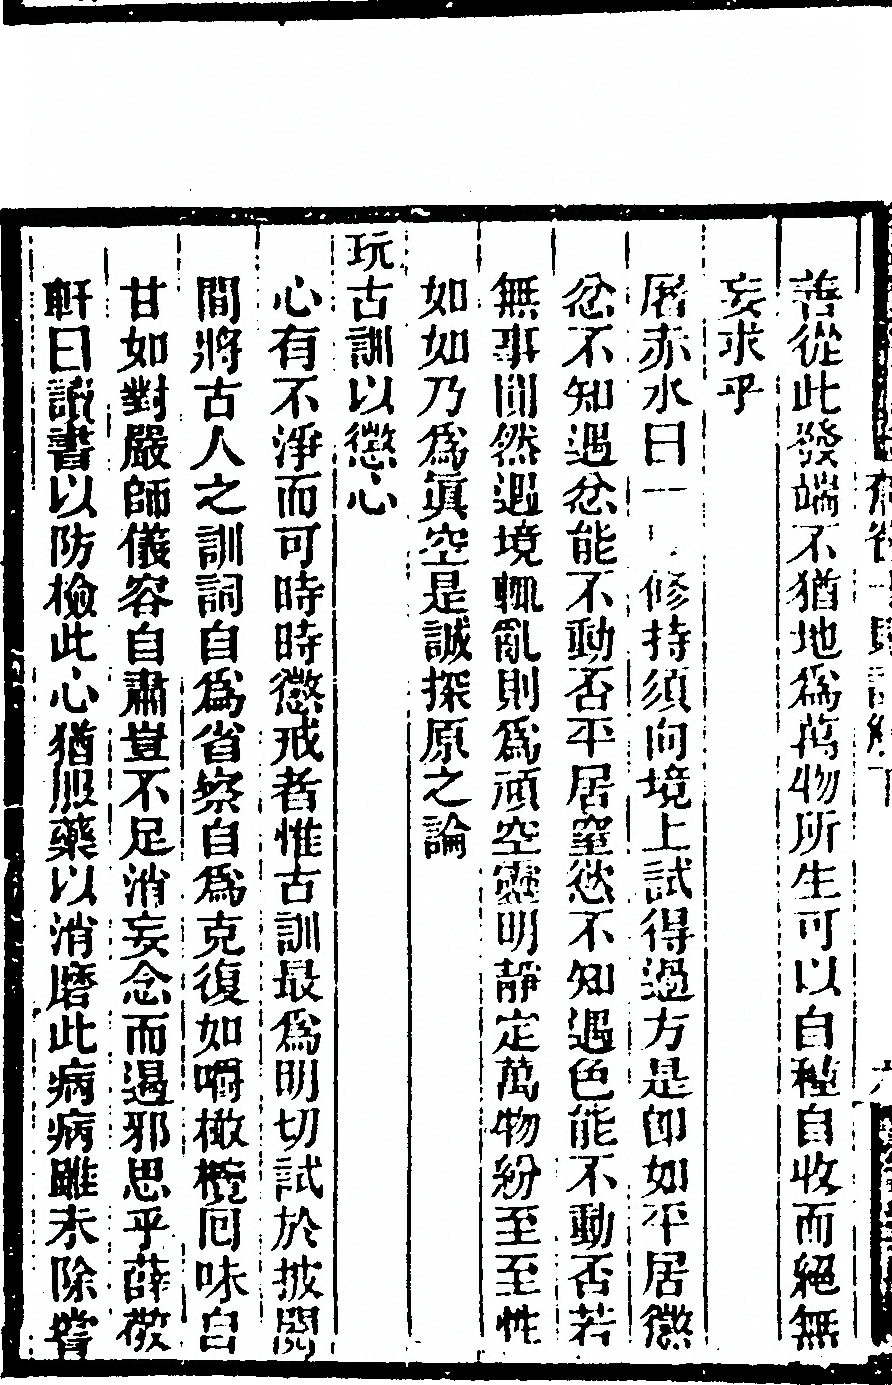 善從此發端不猶地爲萬物所生可以自種自收而絕無
妄求乎
屠赤水曰一 修持須向境上試得過方是卽如平居懲
忿不知遇忿能不動否平居窒慾不知遇色能不動否若
無事閒然遇境輒亂則爲頑空靈明靜定萬物紛至至性
如如乃爲眞空是誠探原之論
玩古訓以懲心
心有不淨而可時時懲戒者惟古訓最爲明切試於披閱
間將古人之訓詞自爲省察自爲克復如嚼橄欖回味自
甘如對嚴師儀容自肅豈不足消妄念而遏邪思乎薛敬
軒曰讀書以防檢此心猶服藥以消磨此病病雖未除嘗